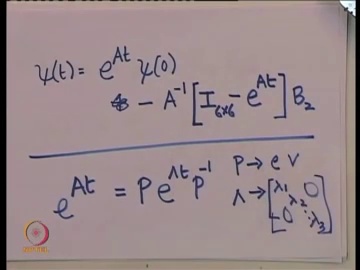 ψ(t) = e^{At} ψ(0)
- A^{-1} [I_{6x6} - e^{At}] B_2
e^{At} = P e^{Λt} P^{-1}
P → e v
Λ → [λ_1 0
λ_2
0 ⋱ λ_3]
NPTEL